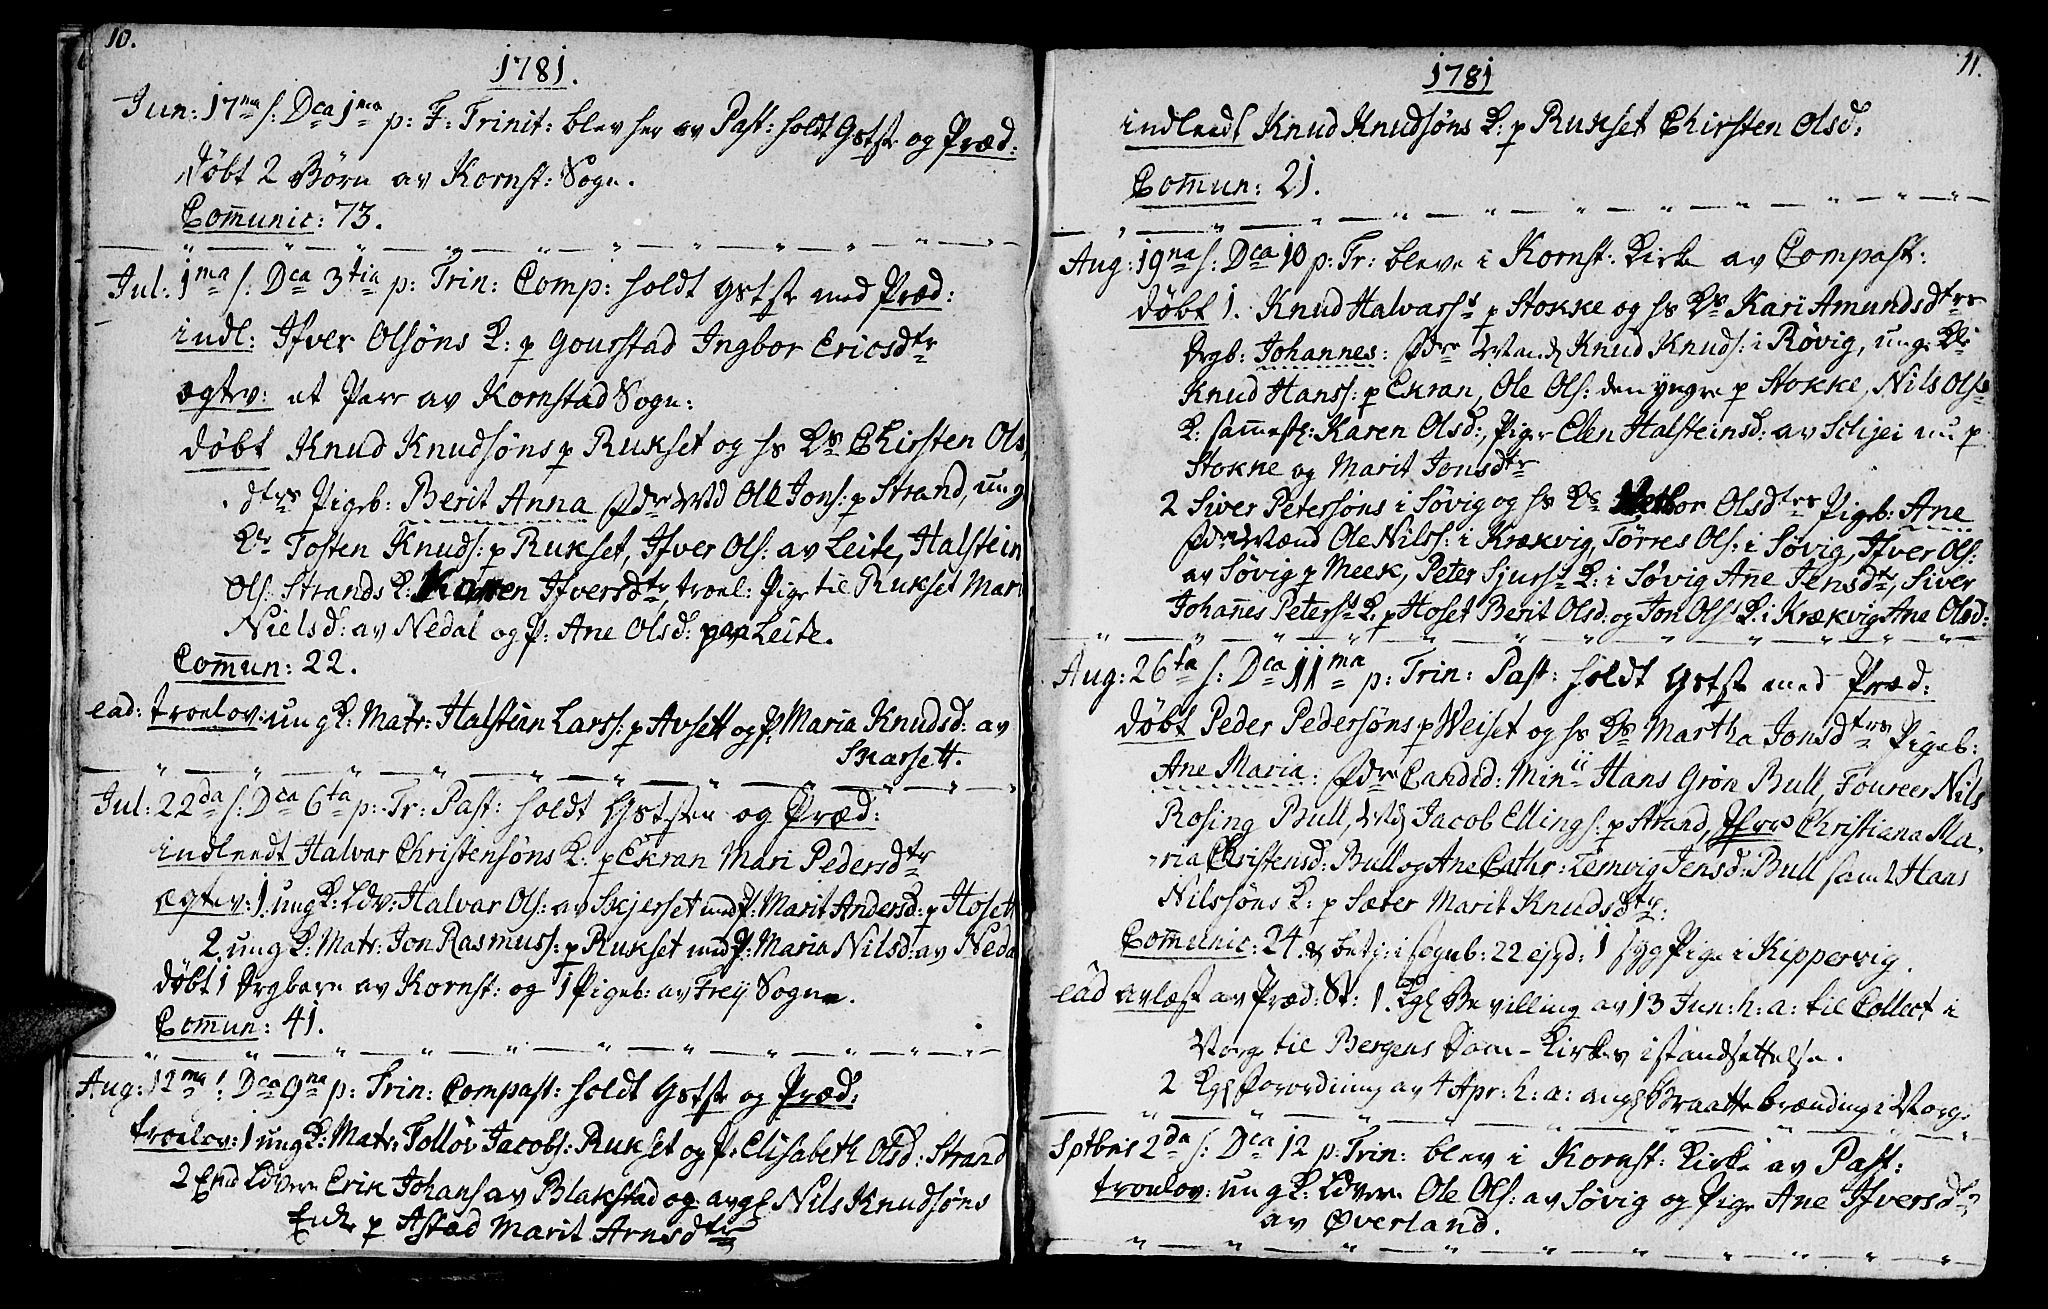 10.
1781.
Jun: 17na s: Dca 1ma p: F: Trinit: blev her av Past: holdt Gstste og Præd:
døbt 2 Børn av Kornst: Sogn.
Comunic: 73.
Jul: 1ma s: Dca 3tia p: Trin: Comp: holdt Gstste med Præd:
indl: Ifver Olsöns K: p Gourstad Ingbor Ericsdtr
ægtev: et Parr av Kornstad Sogn:
døbt Knud Knudsöns p Rukset og hs Ks Chirsten Ols,
dtrs Pigeb: Berit Anna Fdre Md Ole Jons: p Strand, ung
Kr Tosten Knuds: p Rukset, Ifver Ols: av Leite, Halstein
Ols: Strands K: Karen Ifversdtr, troel: Pige til Rukset Mari
Nielsd: av Nedal og P: Ane Olsd: paa Leite.
Comun: 22.
ead: troelov: ung K: Matr: Halstein Larss: p Avsett og P: Maria Knudsd: av
Skarsett.
Jul: 22da s: Dca 6ta p: Tr: Past: holdt Gststen og Præd:
indleedt Halvar Christensöns K: p Ekran Mari Pedersdtr
ægtev: 1. ung K: Ldv: Halvar Ols: av Skjerset med P: Marit Andersd: p Hoset
2. ung K: Matr: Jon Rasmuss: p Rukset med P: Maria Nilsd: av Neda
døbt 1 Drgbarn av Kornst: og 1 Pigeb: av Freij Sogn.
Comun: 41.
Aug: 12ma s: Dca 9na p: Trin: Compast: holdt Gstste og Præd:
troelov: 1 ung K: Matr: Tolløv Jacobs: Rukset og P: Elisabeth Olsd: Strand
2 Enk Ldvern Erik Johans av Blakstad og avgl Nils Knudsöns
Enke p Astad Marit Arnsdtr
11.
1781
indleedt Knud Knudsöns K: p Rukset Chirsten Olsd:
Comun: 21.
Aug: 19na s: Dca 10 p: Tr: bleve i Kornst: Kirke av Compast:
døbt 1. Knud Halvarss p Stokke og hs Ks Kari Amundsdtrs
Drgb: Johannes: Fdre Mænd Knud Knuds: i Røvig, ung K:
Knud Hanss: p Ekran, Ole Ols: den yngre p Stokke, Nils Olss
K: sammest: Karen Olsd:, Piger Elen Halsteinsd: av Schjei nu p
Stokke og Marit Jonsdtr
2 Siver Petersöns i Søvig og hs Ks Olsdtrs Pigeb: Ane
Fdre Mænd Ole Nilss: i Krækvig, Tørres Ols: i Søvig, Ifver Ols:
av Søvig p Meek, Peter Sjurss K: i Søvig Ane Jensdtr, Siver
Johannes Peterss K: p Hoset Berit Olsd: og Jon Ols K: i Krækvig Ane Olsd:
Aug: 26ta s: Dca 11ma p: Trin: Past: holdt Gstste med Præd:
døbt Peder Pedersöns p Weiset og hs Ks Martha Jonsdtrs Pigeb:
Ane Maria: Fdre Candid: Minii Hans Grön Bull, Foureer Nils
Rosing Bull, Md Jacob Ellings: p Strand, Jfrr Christiana Ma,
ria Christensd: Bull og Ane Cathr: Lemvig Jensd: Bull samt Hans
Nilssöns K: p Sæter Marit Knudsdtr:
Comunic: 24. & betj: i sognb: 22 ejsd: 1 syg Pige i Kippervig.
ead avlæst av Præd: St: 1. Kgl Bevilling av 13 Jun: h: a: til Collect i
Norge til Bergens Dom-Kirkes istandsettelse.
2 Kgl Forordning av 4 Apr: h: a: angl Braatte brænding i Norge
Sptbris 2da s: Dca 12 p: Trin: blev i Kornst: Kirke av Past:
troelov: ung K: Ldvern Ole Ols: av Søvig og Pige Ane Ifversdtr
av Øverland.